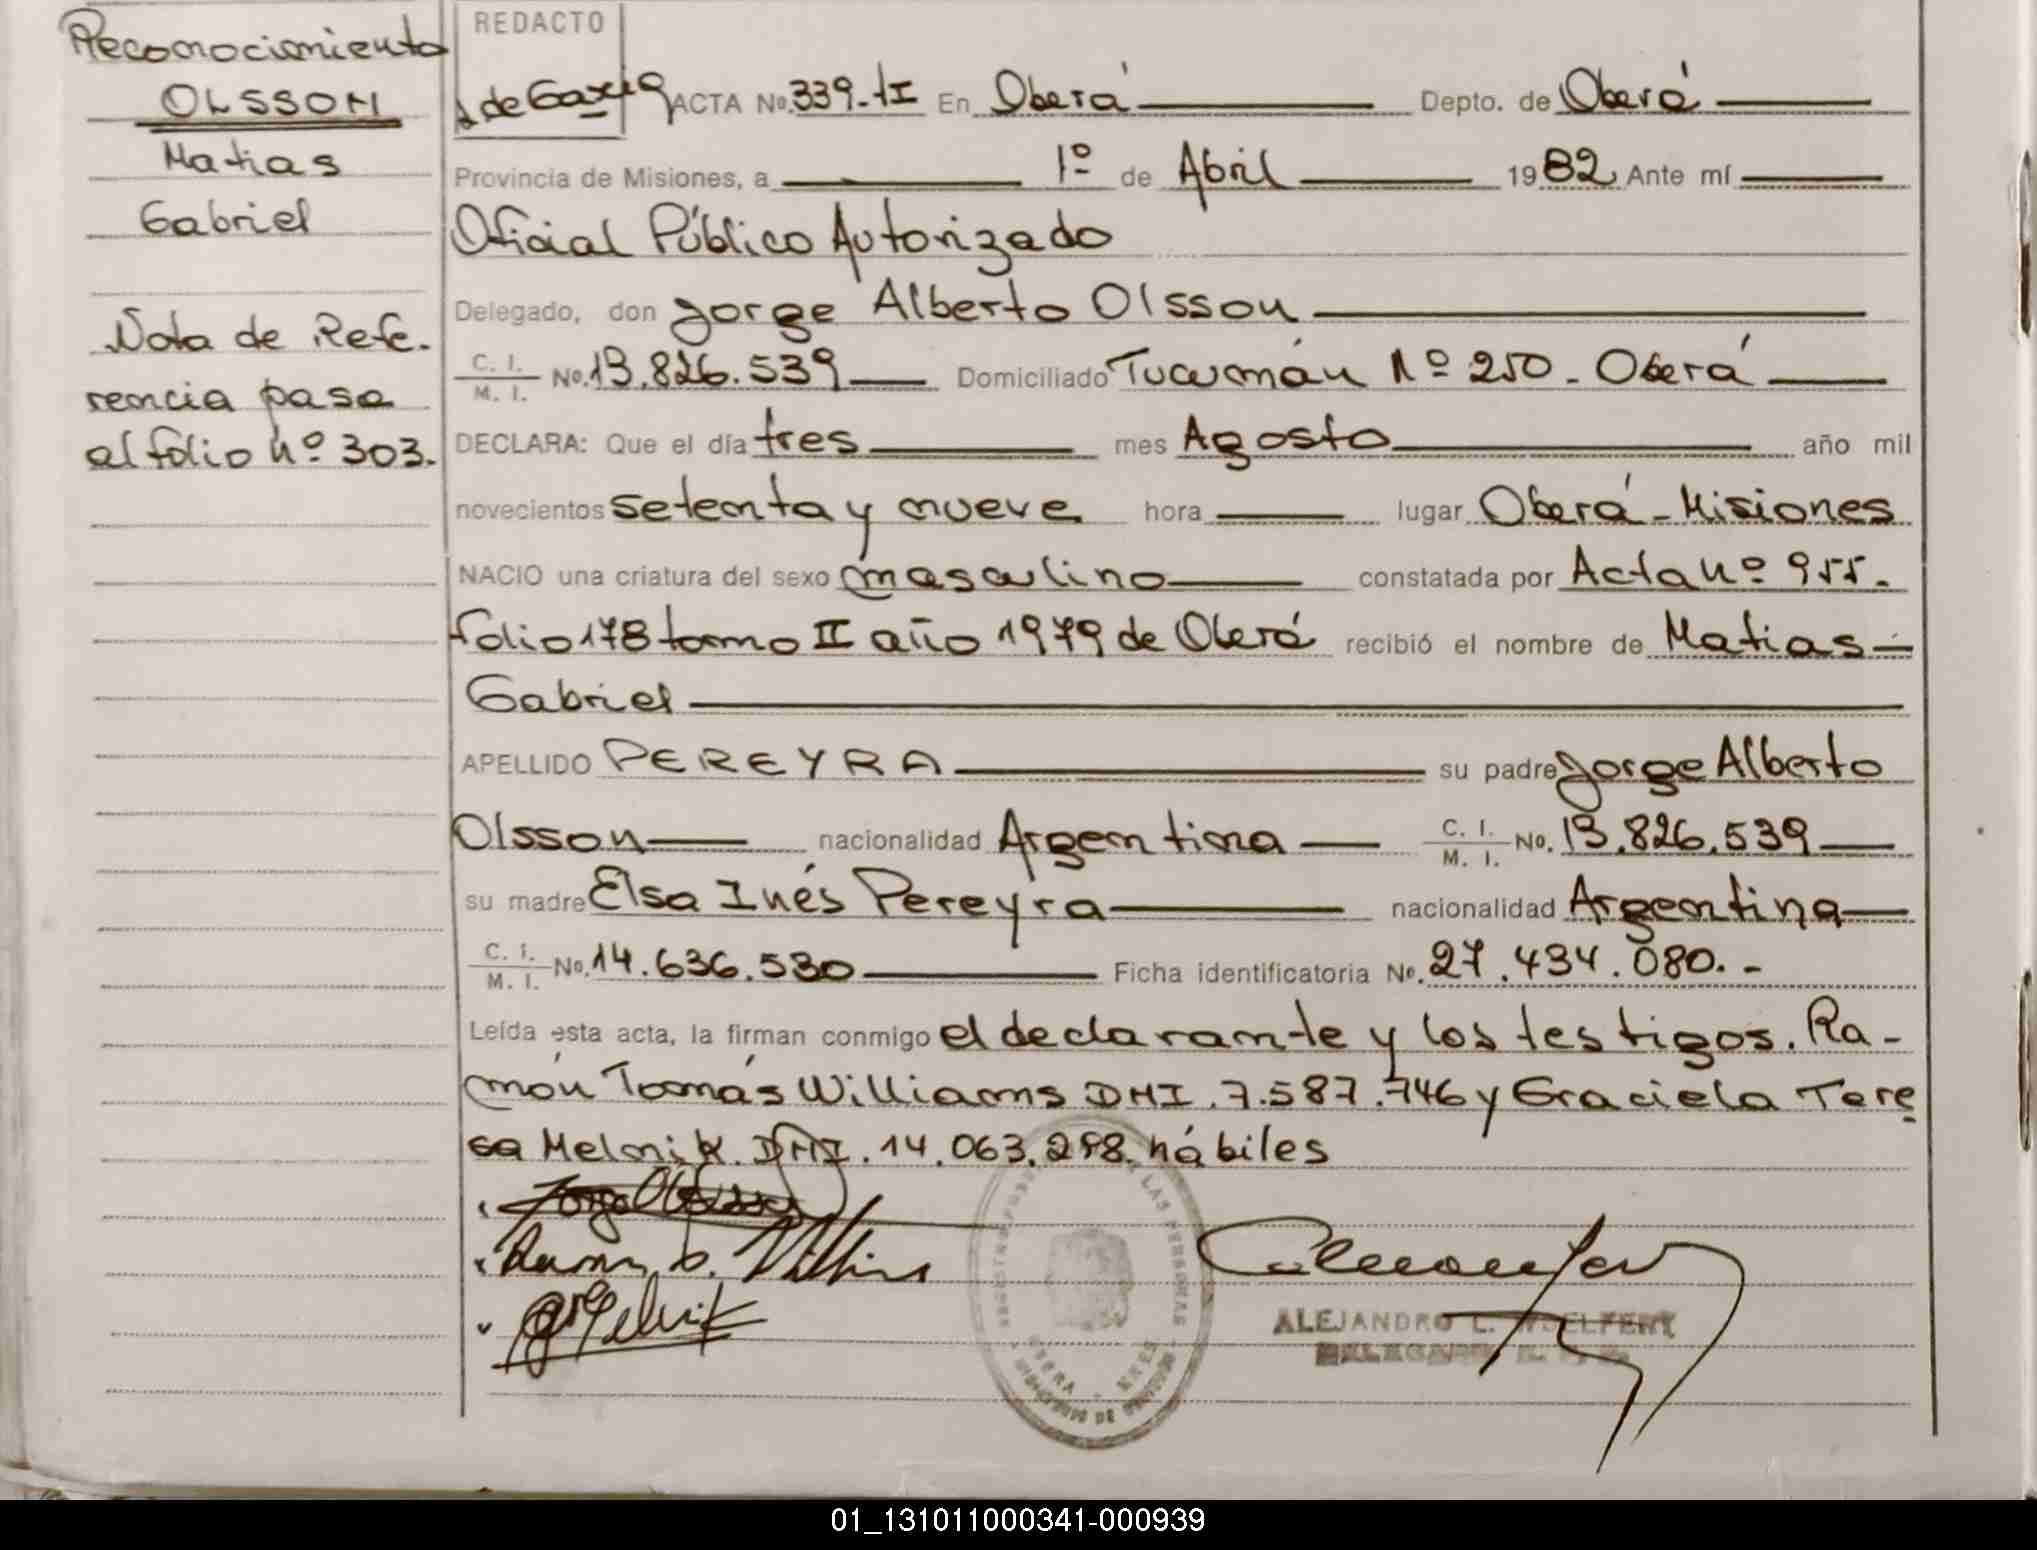 Reconocimiento
OLSSON
Matias
Gabriel
Nota de Refe-
rencia pasa
al folio nº 303.
REDACTO
de Garcia
ACTA No. 339-tI En Oberá Depto. de Oberá
Provincia de Misiones, a 1º de Abril 1982 Ante mí
Oficial Público Autorizado
Delegado, don Jorge Alberto Olsson
C. I. / M. I. No. 13.826.539 Domiciliado Tucumán Nº 250 - Oberá
DECLARA: Que el día tres mes Agosto año mil
novecientos setenta y nueve hora lugar Oberá - Misiones
NACIO una criatura del sexo masculino constatada por Acta nº 955.
folio 178 tomo II año 1979 de Oberá recibió el nombre de Matias
Gabriel
APELLIDO PEREYRA su padre Jorge Alberto
Olsson nacionalidad Argentina C. I. / M. I. No. 13.826.539
su madre Elsa Inés Pereyra nacionalidad Argentina
C. I. / M. I. No. 14.636.530 Ficha identificatoria No. 27.434.080. -
Leída esta acta, la firman conmigo el declarante y los testigos. Ra-
món Tomás Williams DNI. 7.587.746 y Graciela Tere
sa Melnik. DNI. 14.063.298. hábiles
ALEJANDRO L. WOELFERT
01_131011000341-000939